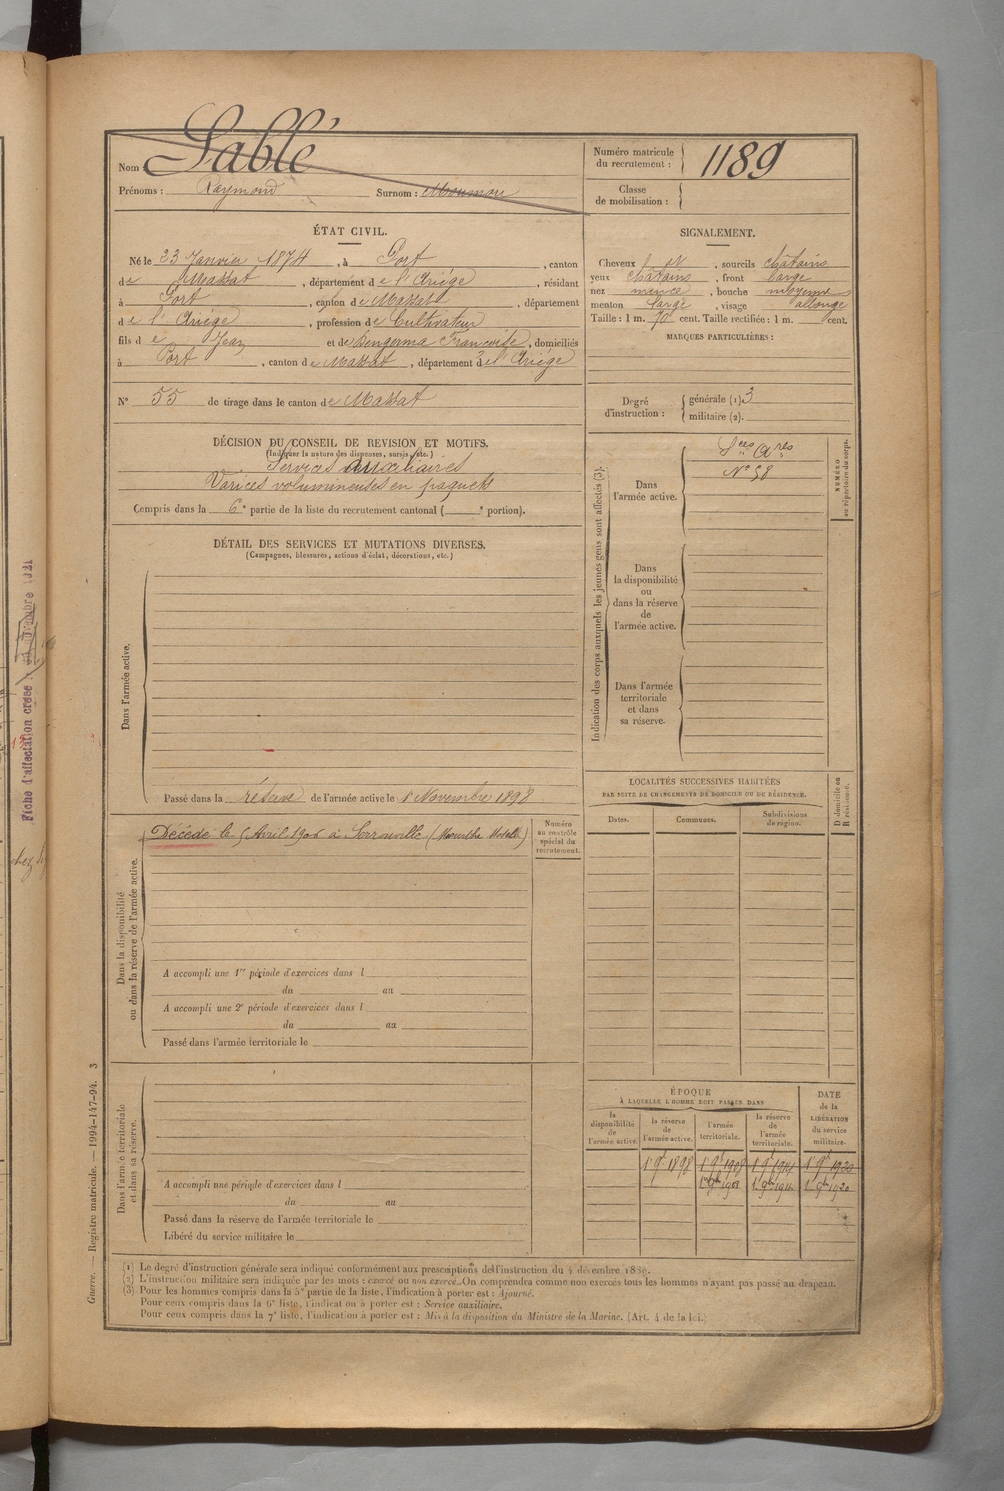 Nom Sablé
Prénoms : Raymond Surnom :
Numéro matricule du recrutement : 1189
Classe de mobilisation :
ÉTAT CIVIL.
Né le 23 Janvier 1874, à Port, canton
de Massat, département de l'Ariége, résidant
à Port, canton de Massat, département
de l'Ariége, profession de Cultivateur
fils de Jean et de Françoise, domiciliés
à Port, canton de Massat, département de l'Ariége
N° 55 de tirage dans le canton de Massat
DÉCISION DU CONSEIL DE REVISION ET MOTIFS.
(Indiquer la nature des dispenses, sursis, etc.)
Services auxiliaires
Varices volumineuses en paquets
Compris dans la 6e partie de la liste du recrutement cantonal ( e portion).
DÉTAIL DES SERVICES ET MUTATIONS DIVERSES.
(Campagnes, blessures, actions d'éclat, décorations, etc.)
Dans l'armée active.
Passé dans la réserve de l'armée active le 1 Novembre 1898
Dans la disponibilité
ou dans la réserve de l'armée active.
Décédé le 5 Avril 1906 à Serrouville (Meurthe Moselle)
Numéro
au contrôle
spécial du
recrutement.
A accompli une 1re période d'exercices dans l
du au
A accompli une 2e période d'exercices dans l
du au
Passé dans l'armée territoriale le
Dans l'armée territoriale
et dans sa réserve.
A accompli une période d'exercices dans l
du au
Passé dans la réserve de l'armée territoriale le
Libéré du service militaire le
SIGNALEMENT.
Cheveux , sourcils châtains
yeux châtains, front large
nez mince, bouche moyenne
menton large, visage allongé
Taille : 1 m. 70 cent. Taille rectifiée : 1 m. cent.
MARQUES PARTICULIÈRES :
Degré d'instruction : générale (1) 3
militaire (2).
Indication des corps auxquels les jeunes gens sont affectés (3).
Dans
l'armée active.
Sces Ares
N° 58
NUMÉRO
au répertoire du corps.
Dans
la disponibilité
ou
dans la réserve
de
l'armée active.
Dans l'armée
territoriale
et dans
sa réserve.
LOCALITÉS SUCCESSIVES HABITÉES
PAR SUITE DE CHANGEMENTS DE DOMICILE OU DE RÉSIDENCE.
Dates. Communes. Subdivisions de région.
D domicile ou
R résidence.
ÉPOQUE
À LAQUELLE L'HOMME DOIT PASSER DANS
DATE
de la
LIBÉRATION
du service
militaire.
la disponibilité de l'armée active.
la réserve de l'armée active.
l'armée territoriale.
la réserve de l'armée territoriale.
1 9bre 1898 1 9bre 1908 1 9bre 1914 1 9bre 1920
1 9bre 1914 1 9bre 1920
(1) Le degré d'instruction générale sera indiqué conformément aux prescriptions de l'instruction du 4 décembre 1889.
(2) L'instruction militaire sera indiquée par les mots : exercé ou non exercé. On comprendra comme non exercés tous les hommes n'ayant pas passé au drapeau.
(3) Pour les hommes compris dans la 5e partie de la liste, l'indication à porter est : Ajourné.
Pour ceux compris dans la 6e liste, l'indication à porter est : Service auxiliaire.
Pour ceux compris dans la 7e liste, l'indication à porter est : Mis à la disposition du Ministre de la Marine. (Art. 4 de la loi.)
Guerre. — Registre matricule. — 1994-147-94. 3
Fiche d'affectation créée